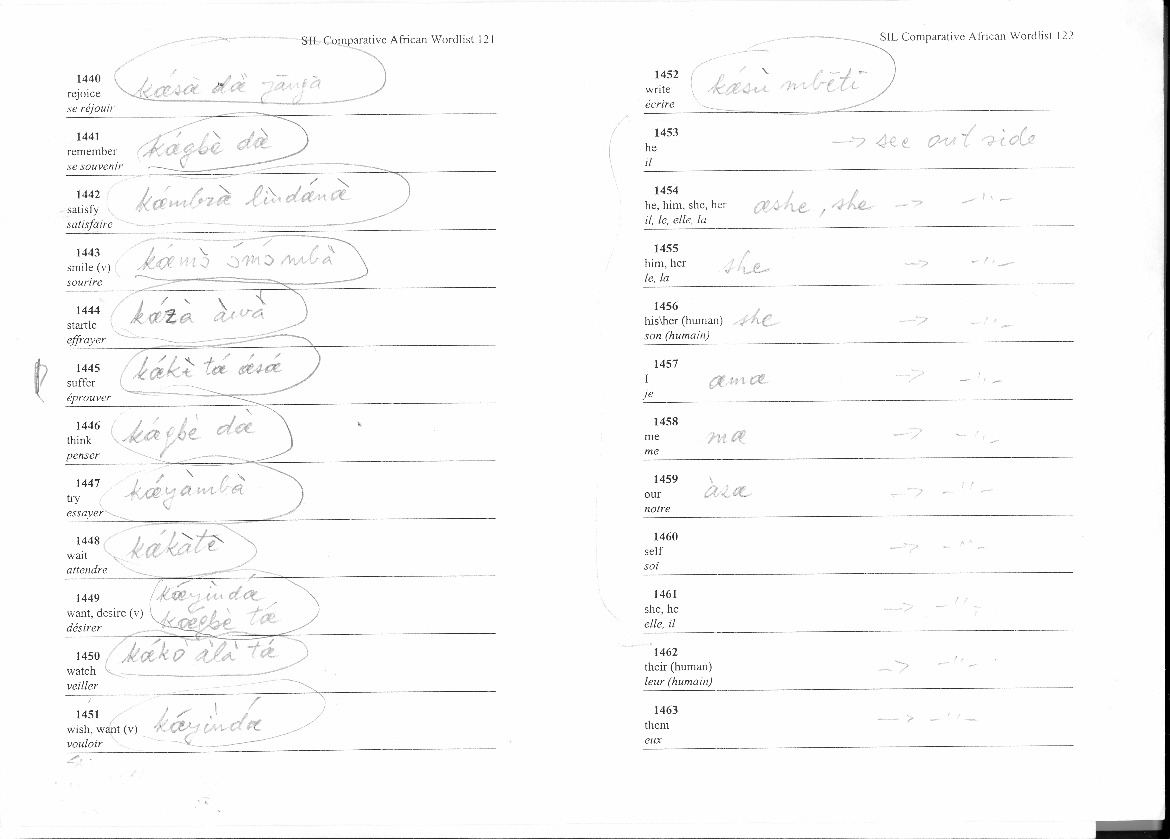 SIL Comparative African Wordlist 121
1440
rejoice kǽsæ̀ dæ̀ jāngà
se réjouir
1441
remember kǽgbè dæ̀
se souvenir
1442
satisfy kǽmbræ̀ lìndǽnæ̀
satisfaire
1443
smile (v) kǽmɔ̀ ɔ́mɔ́ mbà
sourire
1444
startle kǽzà àwà
effrayer
1445
suffer kǽkɨ̀ tǽ ǽsǽ
éprouver
1446
think kǽgbè dæ̀
penser
1447
try kǽyàmbà
essayer
1448
wait kǽkàtè
attendre
1449 kǽyìndǽ
want, desire (v) kǽgbè tǽ
désirer
1450
watch kǽkò àlà tǽ
veiller
1451
wish, want (v) kǽyìndǽ
vouloir
SIL Comparative African Wordlist 122
1452
write kǽsù mbētī
écrire
1453
he → see out side
il
1454
he, him, she, her æshe , she → -"-
il, le, elle, la
1455
him, her she → -"-
le, la
1456
his\her (human) she → -"-
son (humain)
1457
I æmæ → -"-
je
1458
me mæ → -"-
me
1459
our àzæ → -"-
notre
1460
self → -"-
soi
1461
she, he → -"-
elle, il
1462
their (human) → -"-
leur (humain)
1463
them → -"-
eux